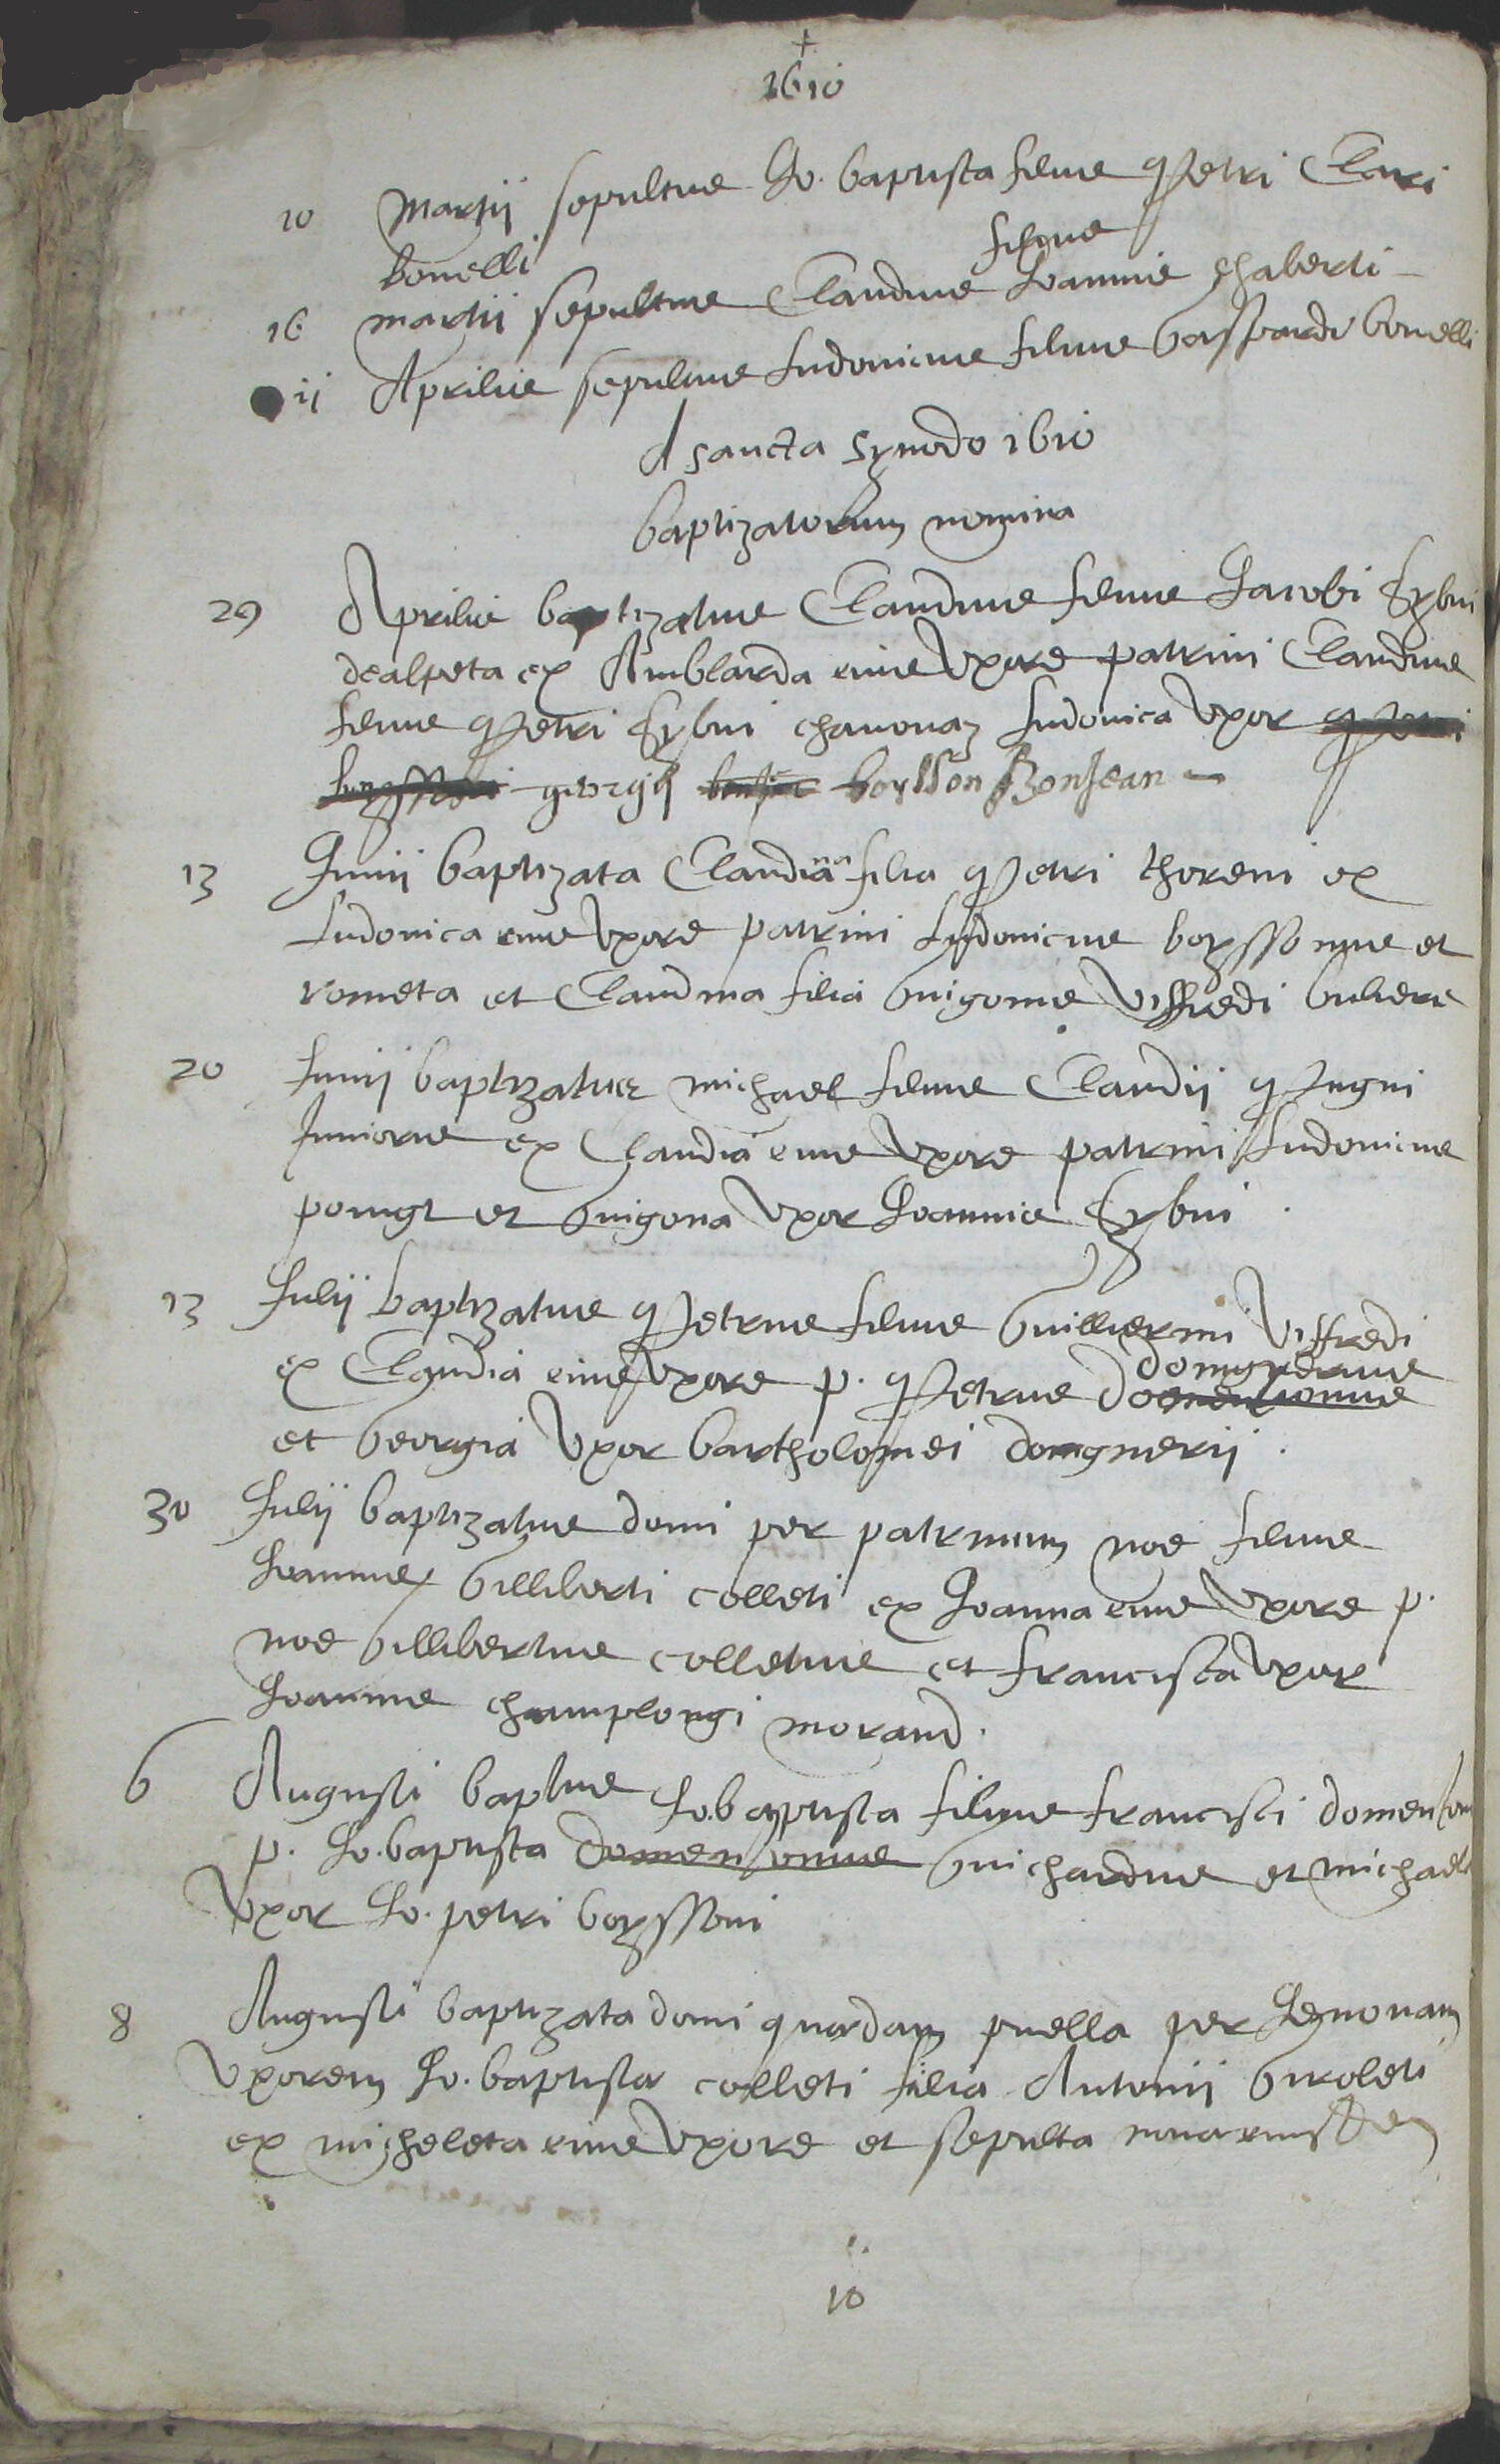 +
1610
10 Martii sepultus Jo. baptista filius Petri Clari
bonelli
filius
16 martii sepultus Claudius Joannis chaberti
11 Aprilis sepultus Ludovicus filius Gasspardi bonelli
A sancta synodo 1610
baptizatorum nomina
29 Aprilis baptizatus Claudius filius Jacobi Sybui
dealpeta ex Amblarda eius Uxore patrini Claudius
filius Petri Sybui chavonaz Ludovica Uxor Petri
georgii boysson Bonjean
13 Junii baptizata Claudina filia Petri thoreni ex
Ludovica eius Uxore patrini Ludovicus boyssonus et
rometa et Claudina filia Guigonis Viffredi
20 Junii baptizatus michael filius Claudii Pugni
Junioris ex Claudia eius Uxore patrini Ludovicus
et Guigona Uxor Joannis Sybui
13 Julii baptizatus Petrus filius Guillermi Viffredi
domgnerius
ex Claudia eius Uxore p. Petrus domensonus
et Georgia Uxor bartholomei domgnerii
30 Julii baptizatus domi per patrinum noe filius
Joannis Gilliberti colleti ex Joanna eius Uxore p.
noe Gillibertus colletus et francisca Uxor
Joannis champlongi morand.
6 Augusti baptus Jo. baptista filius francisci domensoni
p. Jo. baptista domensonus Guichardus et michaela
Uxor Jo. petri boyssoni
8 Augusti baptizata domi quaedam puella per
Uxorem Jo. baptistae colleti filia Antonii Giroleti
ex micheleta eius Uxore et sepulta
10